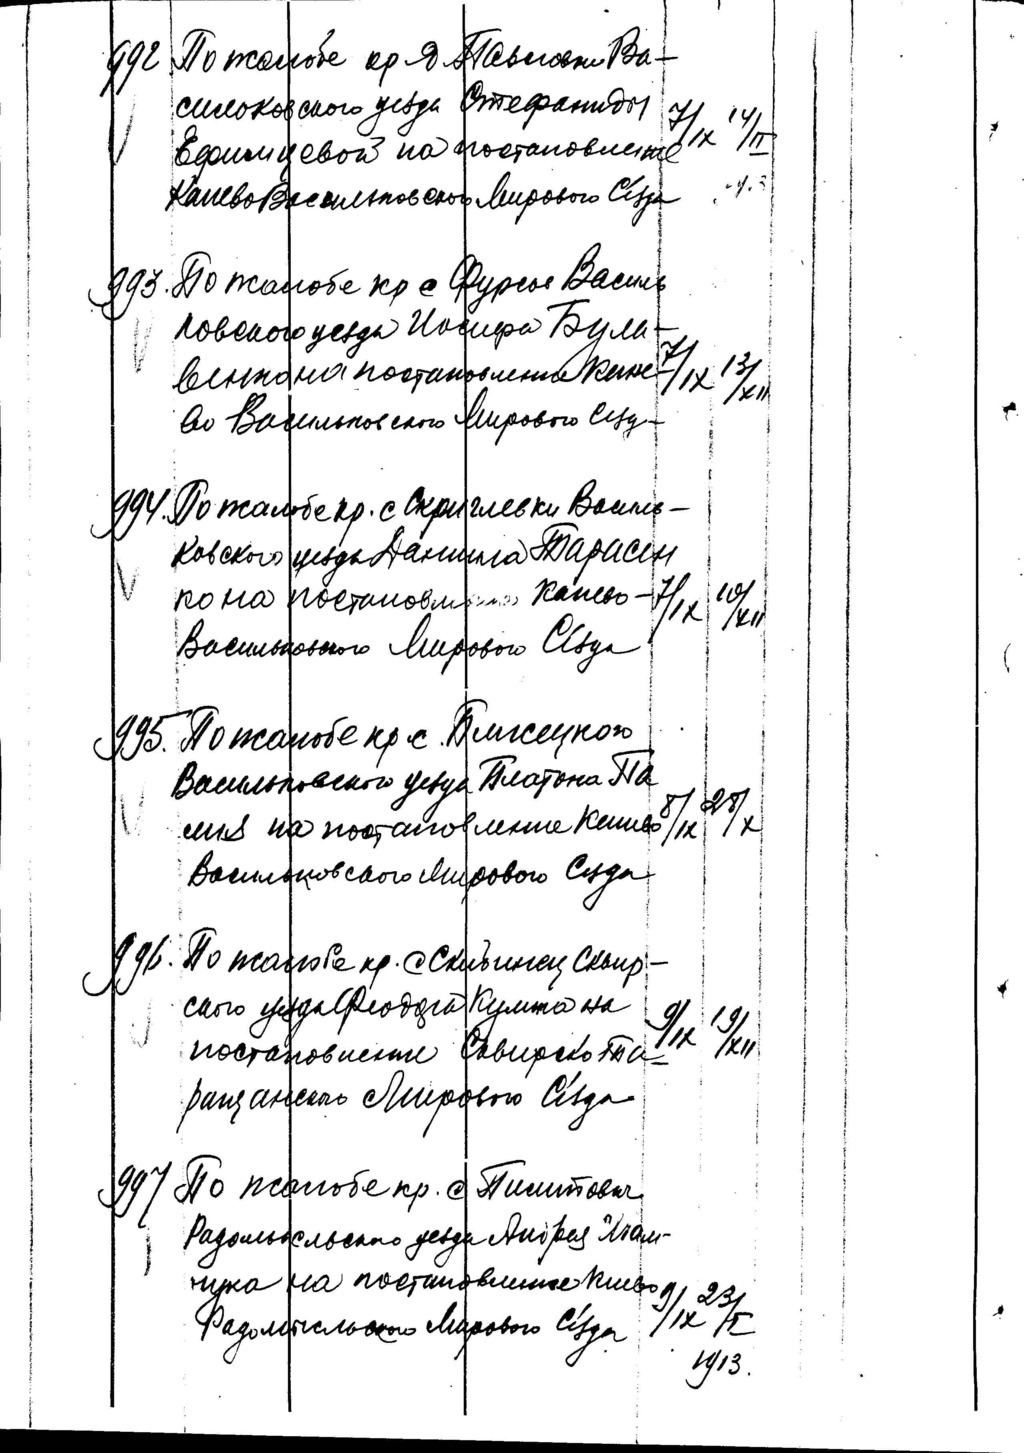 992 По жалобе кр д Павловки Ва-
сильковского уезда Стефаниды 7/IX 14/II
Ефимцевой на постановление
Киево Васильковского Мирового Сезда
993. По жалобе кр с Фурсов Василь
ковского уезда Иосифа Була-
венко на постановление Кие- 7/IX 13/XII
во Васильковского Мирового Сезд-
994. По жалобе кр. с Скриглевки Василь-
ковского уезда Даниила Тарасен
ко на постановление Киево- 7/IX 10/XII
Васильковского Мирового Сезда
995. По жалобе кр с.
Васильковского уезда Платона Па
на постановление Киево 8/IX 28/X
Васильковского Мирового Сезда
996. По жалобе кр. с Скибинец Сквир-
ского уезда Феодора на
постановление Сквирско Та- 9/IX 19/XII
ращанского Мирового Сезда
997 По жалобе кр. с
Радомысльского уезда Андрея
на постановление Киево
Радомысльского Мирового Сезда 9/IX 23/I
1913.